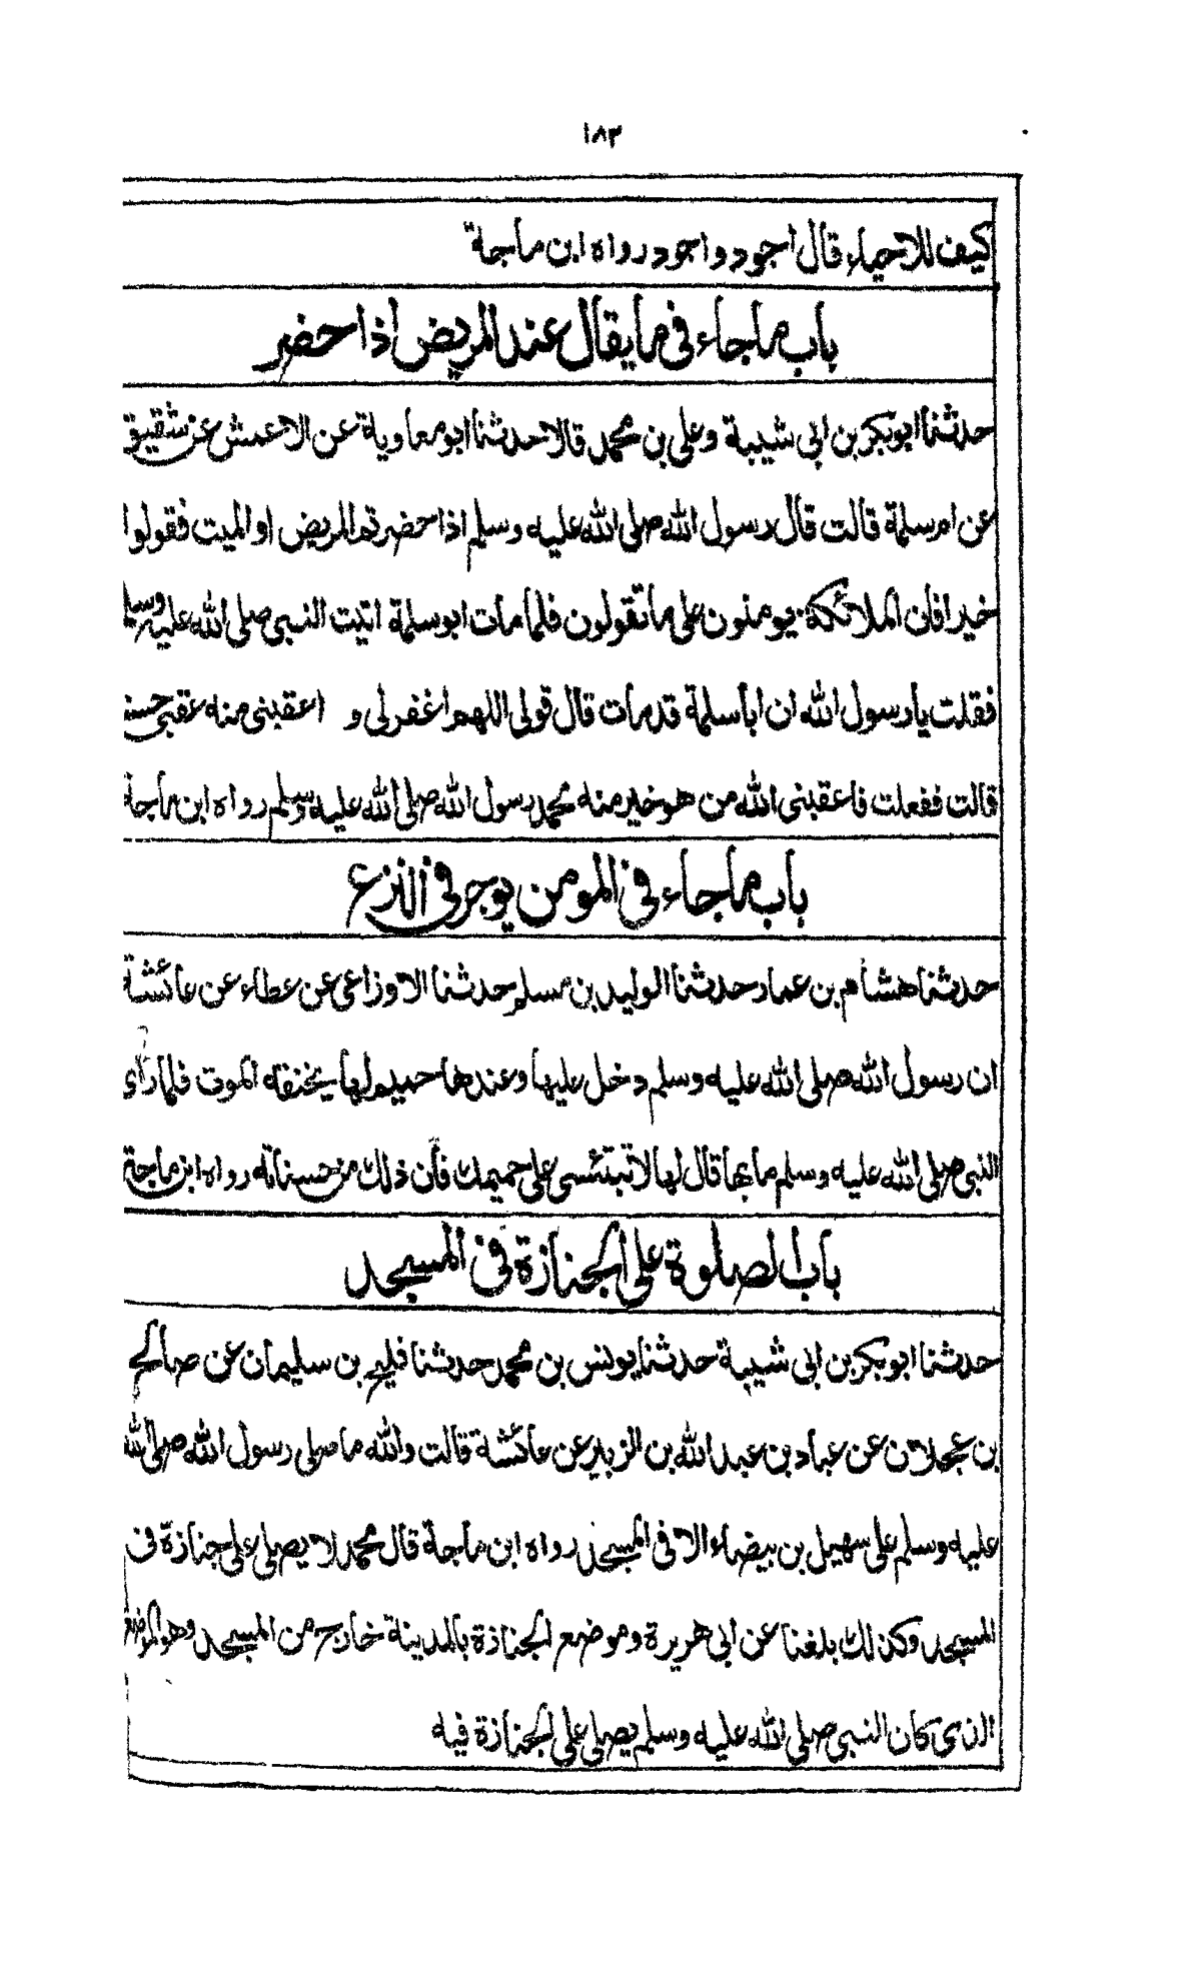 ١٨٣
كيف للاحياء قال اجود واجود رواه ابن ماجة
باب ماجاء فى ما يقال عند المريض اذا حضر
حدثنا ابوبكر بن ابى شيبة وعلى بن محمد قالا حدثنا ابو معاوية عن الاعمش عن شقيق
عن ام سلمة قالت قال رسول الله صلى الله عليه وسلم اذا حضرتم المريض او الميت فقولوا
خيرا فان الملائكة يومنون على ما تقولون فلما مات ابوسلمة اتيت النبى صلى الله عليه وسلم
فقلت يا رسول الله ان ابا سلمة قد مات قال قولى اللهم اغفر لى و اعقبنى منه عقبى حسنة
قالت ففعلت فاعقبنى الله من هو خير منه محمد رسول الله صلى الله عليه وسلم رواه ابن ماجة
باب ماجاء فى المومن يوجر فى النزع
حدثنا هشام بن عمار حدثنا الوليد بن مسلم حدثنا الاوزاعى عن عطاء عن عائشة
ان رسول الله صلى الله عليه وسلم دخل عليها وعندها حميم لها يخنقه الموت فلما رأى
النبى صلى الله عليه وسلم ما بها قال لها لا تبتئسى على حميمك فان ذلك من حسناته رواه ابن ماجة
باب الصلوة على الجنازة فى المسجد
حدثنا ابوبكر بن ابى شيبة حدثنا يونس بن محمد حدثنا فليح بن سليمان عن صالح
بن عجلان عن عباد بن عبد الله بن الزبير عن عائشة قالت والله ما صلى رسول الله صلى الله
عليه وسلم على سهيل بن بيضاء الا فى المسجد رواه ابن ماجة قال محمد لا يصلى على جنازة فى
المسجد وكذلك بلغنا عن ابى هريرة وموضع الجنازة بالمدينة خارج من المسجد وهو الموضع
الذى كان النبى صلى الله عليه وسلم يصلى على الجنازة فيه